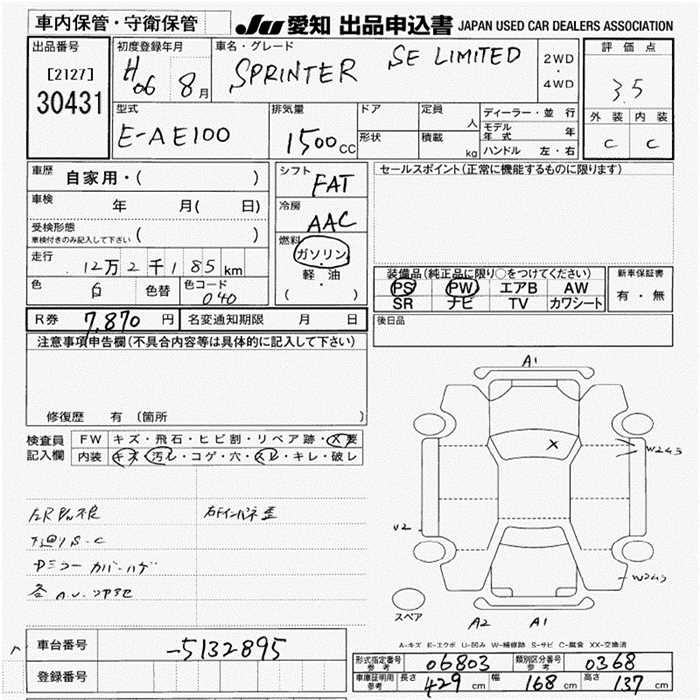 車内保管・守衛保管
JU 愛知 出品申込書 JAPAN USED CAR DEALERS ASSOCIATION
出品番号
[2127]
30431
初度登録年月
H06 8月
車名・グレード
SPRINTER SE LIMITED
2WD
・
4WD
評価点
3.5
外装 内装
C C
型式
E-AE100
排気量
1500cc
ドア
形状
定員 人
積載 kg
ディーラー・並行
モデル年式 年
ハンドル 左・右
車歴 自家用・( )
車検 年 月( 日)
受検形態
車検付きのみ記入して下さい ( )
走行 12万2千185km
色 白 色替 色コード 040
シフト FAT
冷房 AAC
燃料
ガソリン
・
軽・油
( )
セールスポイント(正常に機能するものに限ります)
装備品(純正品に限り○をつけてください)
PS PW エアB AW
SR ナビ TV カワシート
新車保証書
有・無
R券 7,870円 名変通知期限 月 日
後日品
注意事項申告欄(不具合内容等は具体的に記入して下さい)
修復歴 有 (箇所 )
検査員記入欄
FW キズ・飛石・ヒビ割・リペア跡・X要
内装 キズ・汚レ・コゲ・穴・スレ・キレ・破レ
A1
X
W2 4 3
U2
W2 4 3
スペア
A2 A1
A-キズ E-エクボ U-凹み W-補修跡 S-サビ C-腐食 XX-交換済
車台番号 -5132895
登録番号
形式指定番号 参考 06803 類別区分番号 参考 0368
車庫証明用 参考 長さ 429cm 幅 168cm 高さ 137cm